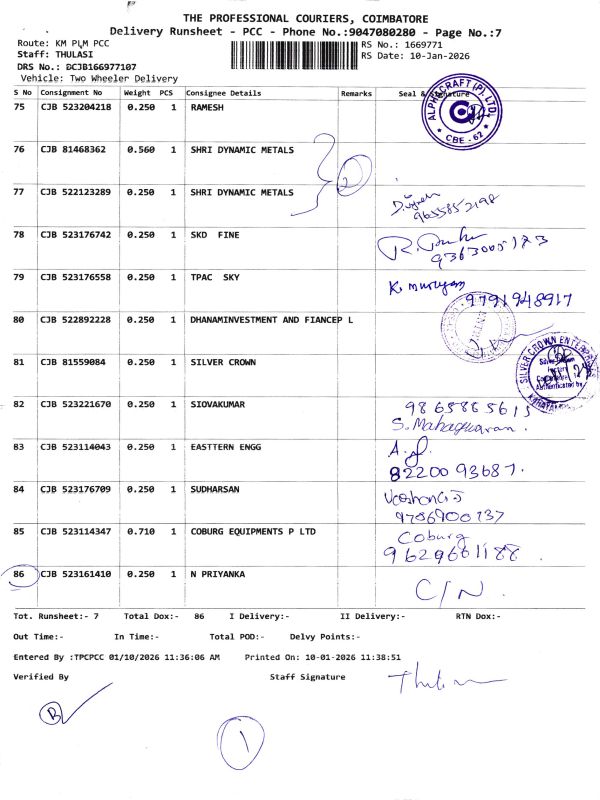 THE PROFESSIONAL COURIERS, COIMBATORE
Delivery Runsheet - PCC - Phone No.:9047080280 - Page No.:7
Route: KM PLM PCC
RS No.: 1669771
Staff: THULASI
RS Date: 10-Jan-2026
DRS No.: DCJB166977107
Vehicle: Two Wheeler Delivery
S No Consignment No Weight PCS Consignee Details Remarks Seal & Signature
75 CJB 523204218 0.250 1 RAMESH
ALPHACRAFT (P) LTD.
* CBE - 62 *
76 CJB 81468362 0.560 1 SHRI DYNAMIC METALS
2
77 CJB 522123289 0.250 1 SHRI DYNAMIC METALS
9655852198
78 CJB 523176742 0.250 1 SKD FINE
9363005173
79 CJB 523176558 0.250 1 TPAC SKY
K. Murugan
9791948917
80 CJB 522892228 0.250 1 DHANAMINVESTMENT AND FIANCEP L
81 CJB 81559084 0.250 1 SILVER CROWN
SILVER CROWN ENTERPRISES
Authenticated by
82 CJB 523221670 0.250 1 SIOVAKUMAR
9865885613
S. Mahaeswaran.
83 CJB 523114043 0.250 1 EASTTERN ENGG
8220093687.
84 CJB 523176709 0.250 1 SUDHARSAN
9786900737
85 CJB 523114347 0.710 1 COBURG EQUIPMENTS P LTD
Coburg
9629681188
86 CJB 523161410 0.250 1 N PRIYANKA
C/N.
Tot. Runsheet:- 7 Total Dox:- 86 I Delivery:- II Delivery:- RTN Dox:-
Out Time:- In Time:- Total POD:- Delvy Points:-
Entered By :TPCPCC 01/10/2026 11:36:06 AM Printed On: 10-01-2026 11:38:51
Verified By Staff Signature
B
1